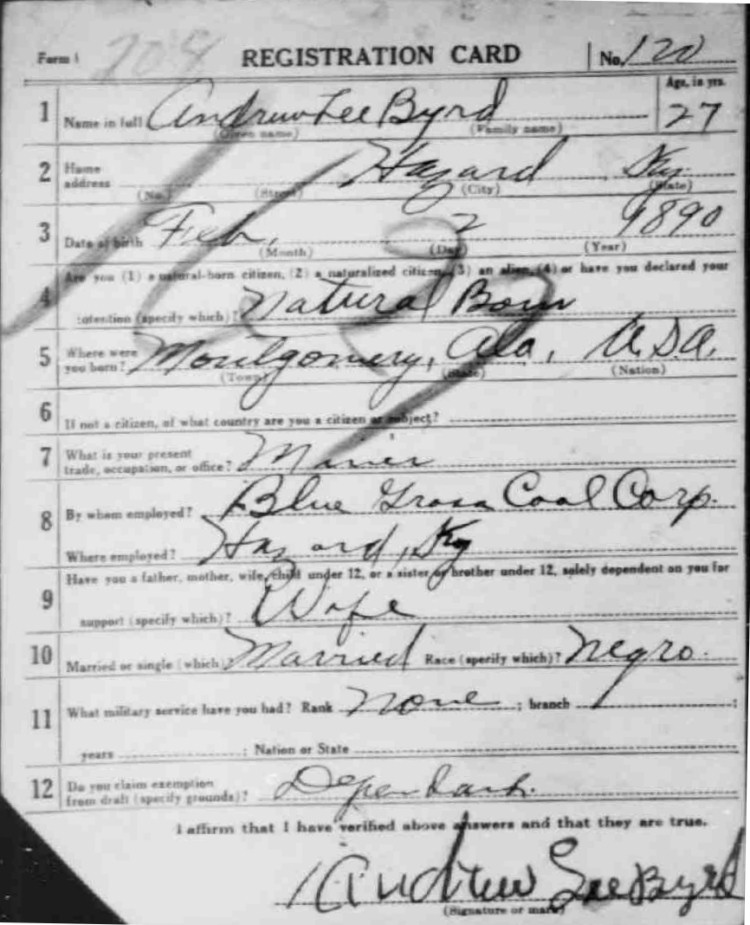 Form 1 204 REGISTRATION CARD No. 120
Age, in yrs.
1 Name in full Andrew Lee Byrd 27
(Given name) (Family name)
2 Home address Hazard, Ky.
(No.) (Street) (City) (State)
3 Date of birth Feb, 2 1890
(Month) (Day) (Year)
4 Are you (1) a natural-born citizen, (2) a naturalized citizen, (3) an alien, (4) or have you declared your
intention (specify which)? Natural Born
5 Where were you born? Montgomery, Ala, U.S.A.
(Town) (State) (Nation)
6 If not a citizen, of what country are you a citizen or subject?
7 What is your present trade, occupation, or office? Miner
8 By whom employed? Blue Grass Coal Corp.
Where employed? Hazard, Ky
9 Have you a father, mother, wife, child under 12, or a sister or brother under 12, solely dependent on you for
support (specify which)? Wife
10 Married or single (which) Married Race (specify which)? Negro.
11 What military service have you had? Rank None ; branch ;
years ; Nation or State
12 Do you claim exemption from draft (specify grounds)?
I affirm that I have verified above answers and that they are true.
Andrew Lee Byrd
(Signature or mark)